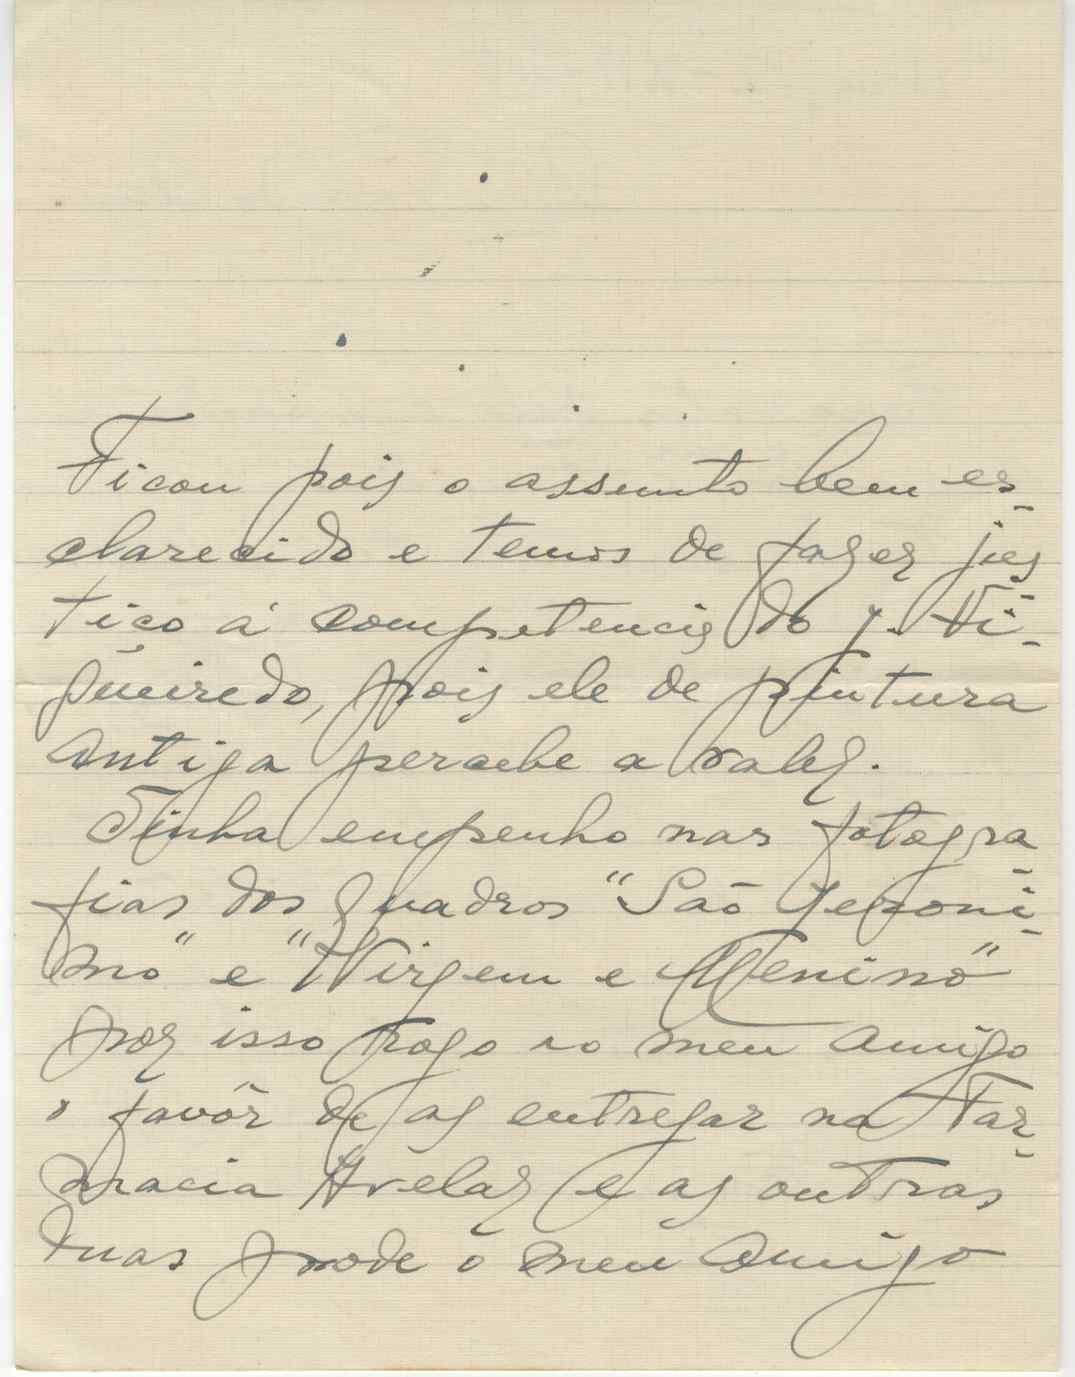 Ficou pois o assunto bem es-
clarecido e temos de fazer jus-
tiça á competencia do J. Fi-
gueiredo, pois ele de pintura
antiga percebe a valer.
Tinha empenho nas fotogra-
fias dos quadros "São Jeroni-
mo" e "Virgem e Menino"
por isso rogo ao meu amigo
o favôr de as entregar na Far-
macia Avelar e as outras
duas pode o meu amigo